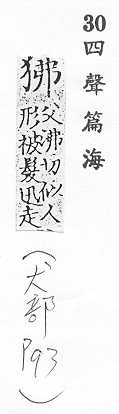 30四聲篇海
狒父沸切似人
形被髮迅走
(犬部
P93)